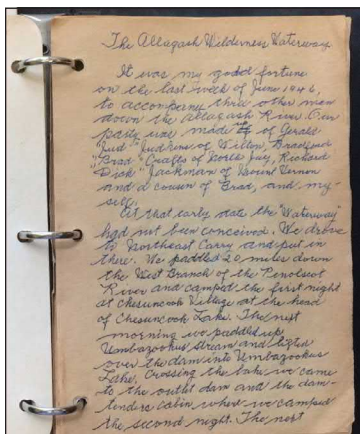 The Allagash Wilderness Waterway
It was my good fortune
on the last week of June 1946,
to accompany three other men
down the Allagash River. Our
party was made up of Gerald
"Jud" Judkins of Wilton, Bradford
"Brad" Crafts of North Jay, Richard
"Dick" Jackman of Mount Vernon
and a cousin of Brad, and my-
self.
At that early date the "Waterway"
had not been conceived. We drove
to Northeast Carry and put in
there. We paddled 20 miles down
the West Branch of the Penobscot
River and camped the first night
at Chesuncook Village at the head
of Chesuncook Lake. The next
morning we paddled up
Umbazookus Stream and lifted
over the dam into Umbazookus
Lake. Crossing the lake we came
to the outlet dam and the dam-
tenders cabin, where we camped
the second night. The next